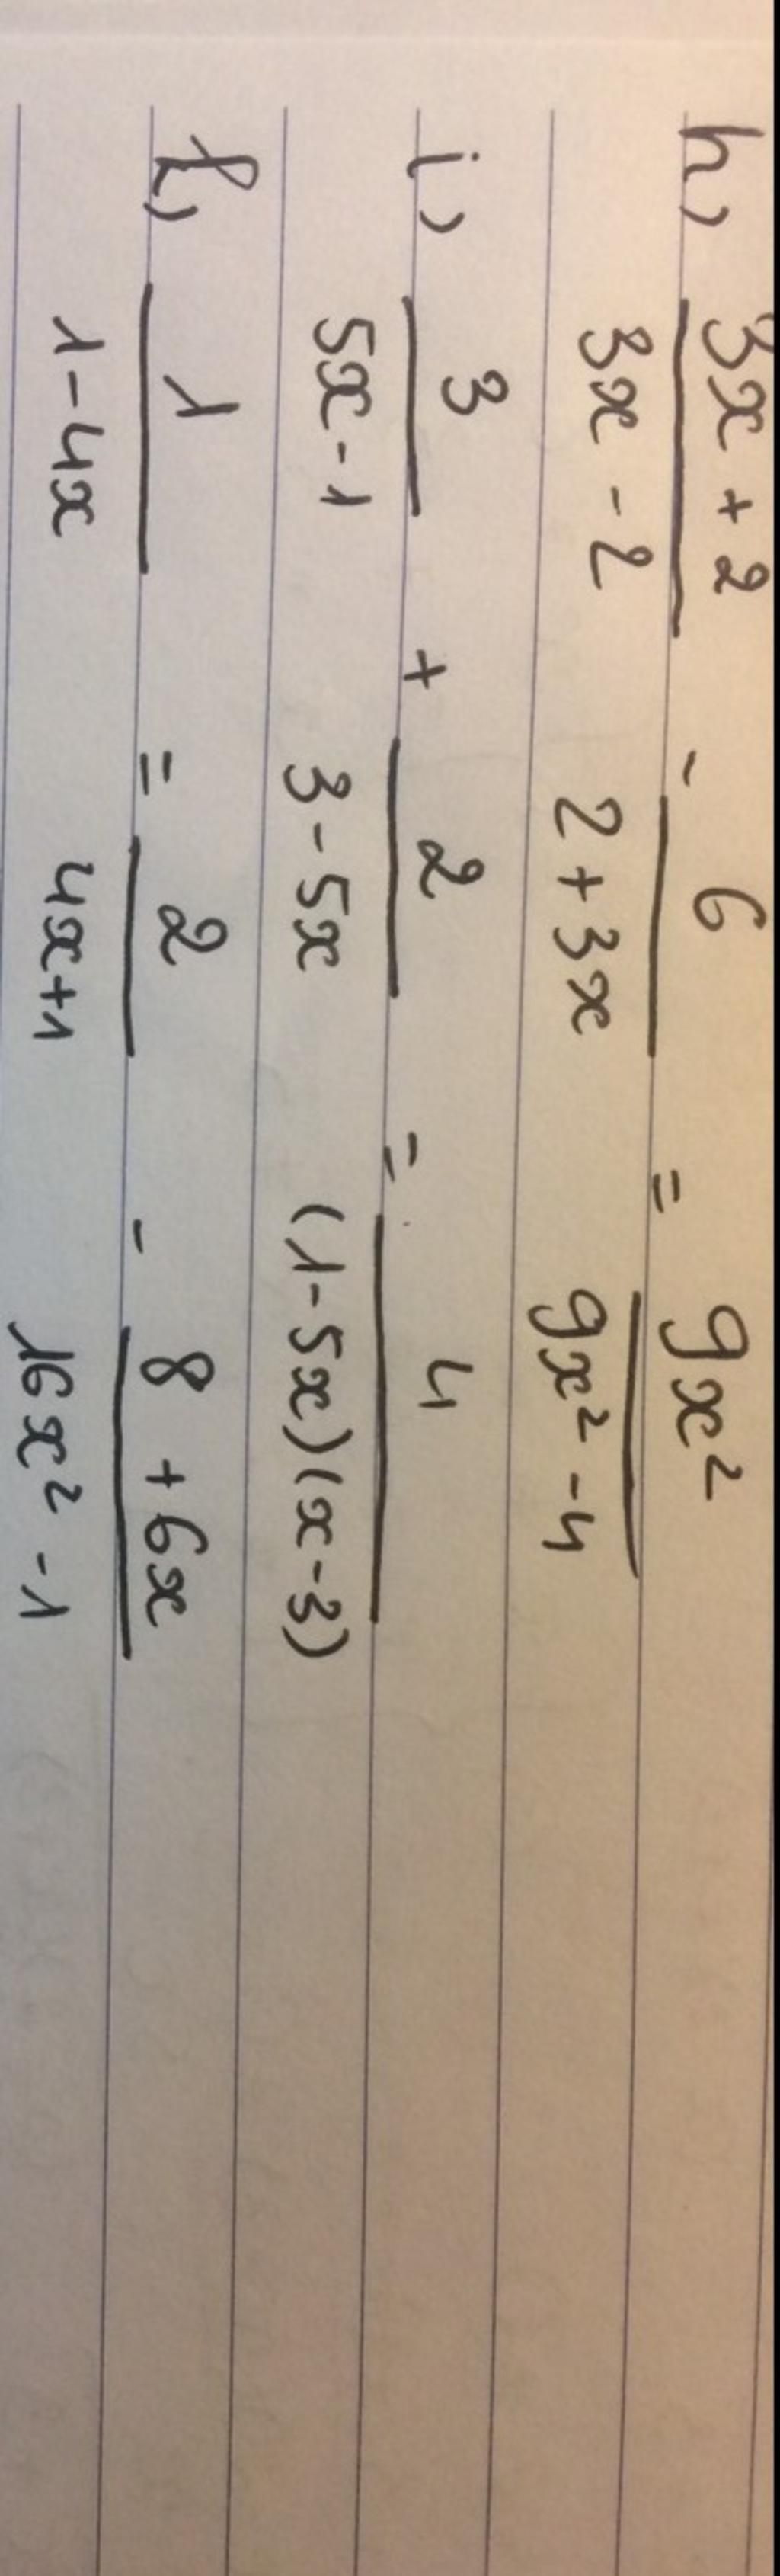 h, (3x + 2)/(3x - 2) - 6/(2 + 3x) = 9x²/(9x² - 4)
i, 3/(5x - 1) + 2/(3 - 5x) = 4/((1 - 5x)(x - 3))
1/(1 - 4x) = 2/(4x + 1) - (8 + 6x)/(16x² - 1)